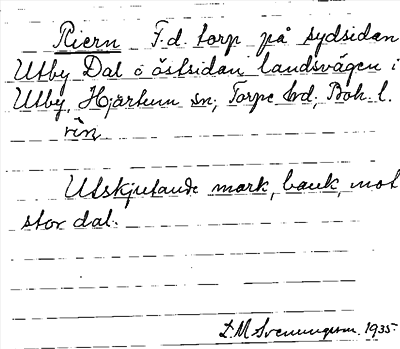 Riern F.d. torp på sydsidan
Utby Dal o östsidan landsvägen i
Utby, Hjärtum sn; Torpe hd; Boh. l.
rin
Utskjutande mark, bank, mot
stor dal.
D. M. Svenungsson. 1935.